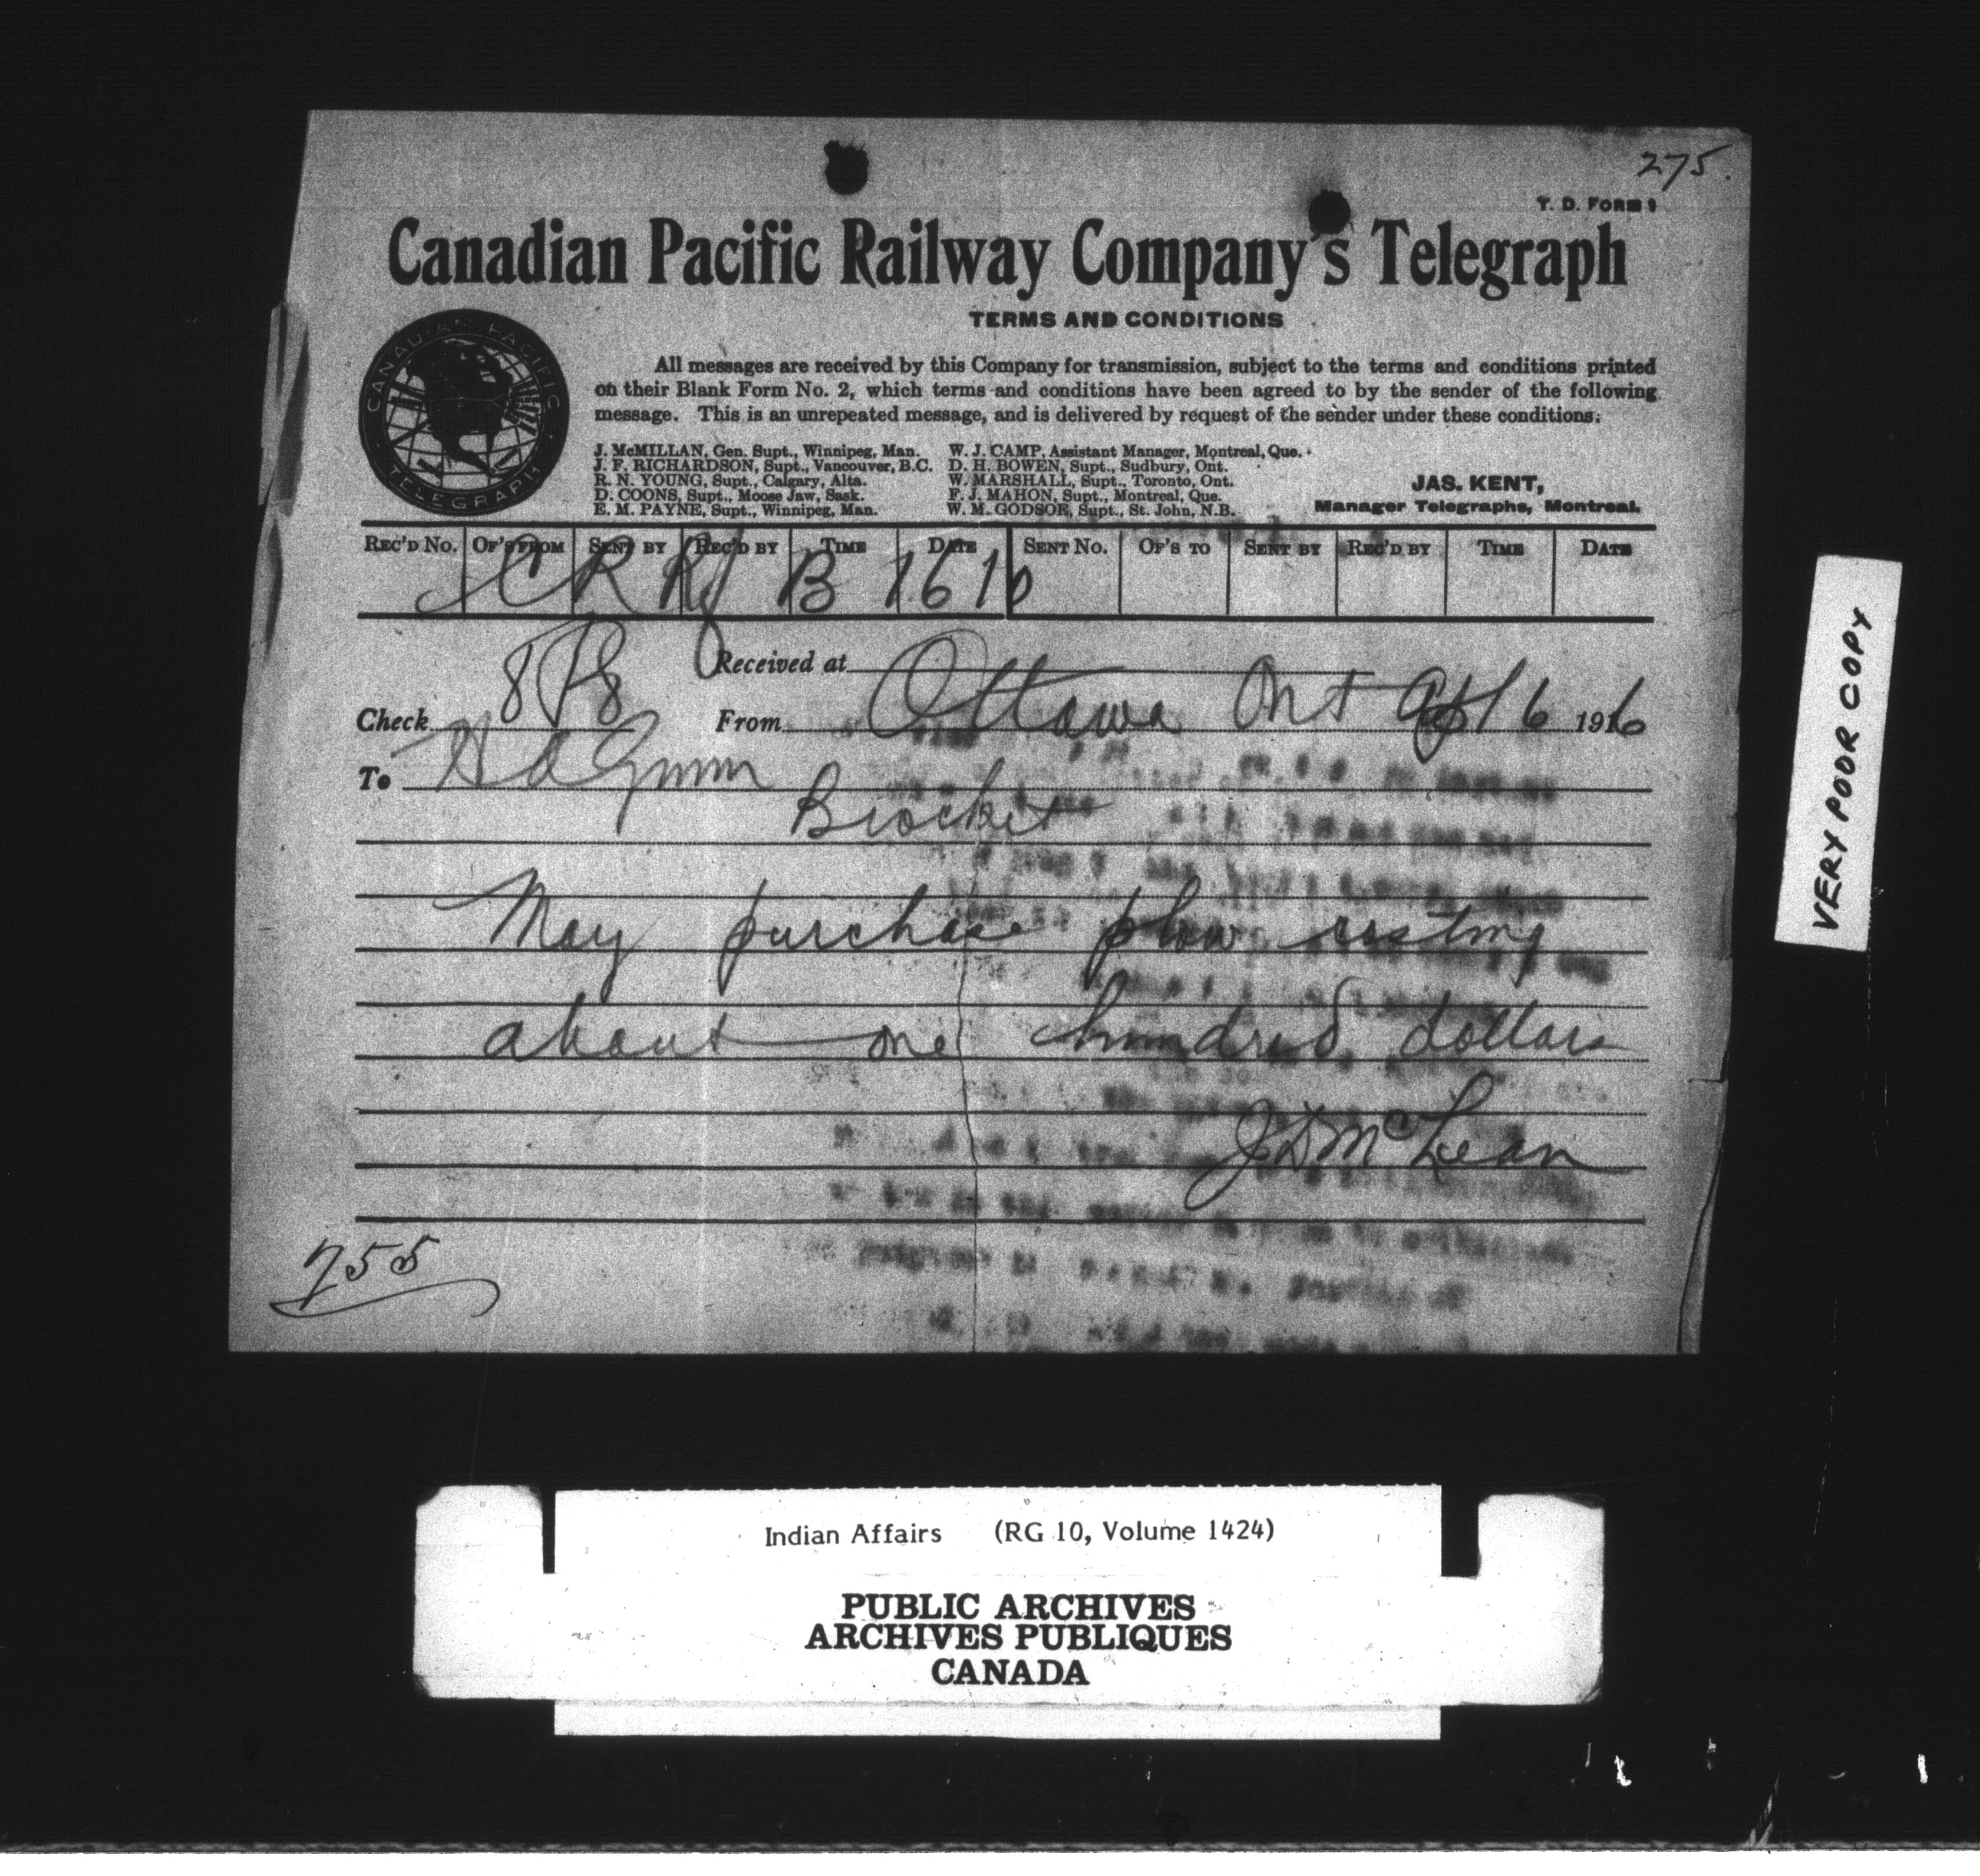 275.
T. D. FORM 1
Canadian Pacific Railway Company's Telegraph
TERMS AND CONDITIONS
CANADIAN PACIFIC TELEGRAPH
All messages are received by this Company for transmission, subject to the terms and conditions printed
on their Blank Form No. 2, which terms and conditions have been agreed to by the sender of the following
message. This is an unrepeated message, and is delivered by request of the sender under these conditions.
J. McMILLAN, Gen. Supt., Winnipeg, Man. W. J. CAMP, Assistant Manager, Montreal, Que.
J. F. RICHARDSON, Supt., Vancouver, B.C. D. H. BOWEN, Supt., Sudbury, Ont.
R. N. YOUNG, Supt., Calgary, Alta. W. MARSHALL, Supt., Toronto, Ont.
D. COONS, Supt., Moose Jaw, Sask. F. J. MAHON, Supt., Montreal, Que.
E. M. PAYNE, Supt., Winnipeg, Man. W. M. GODSOE, Supt., St. John, N.B.
JAS. KENT,
Manager Telegraphs, Montreal.
REC'D NO. OF'S FROM SENT BY REC'D BY TIME DATE SENT NO. OF'S TO SENT BY REC'D BY TIME DATE
Received at
Check From Ottawa Ont 6 1916
To
Brocket
May purchase plow costing
about one hundred dollars
J D McLean
755
VERY POOR COPY
Indian Affairs (RG 10, Volume 1424)
PUBLIC ARCHIVES
ARCHIVES PUBLIQUES
CANADA